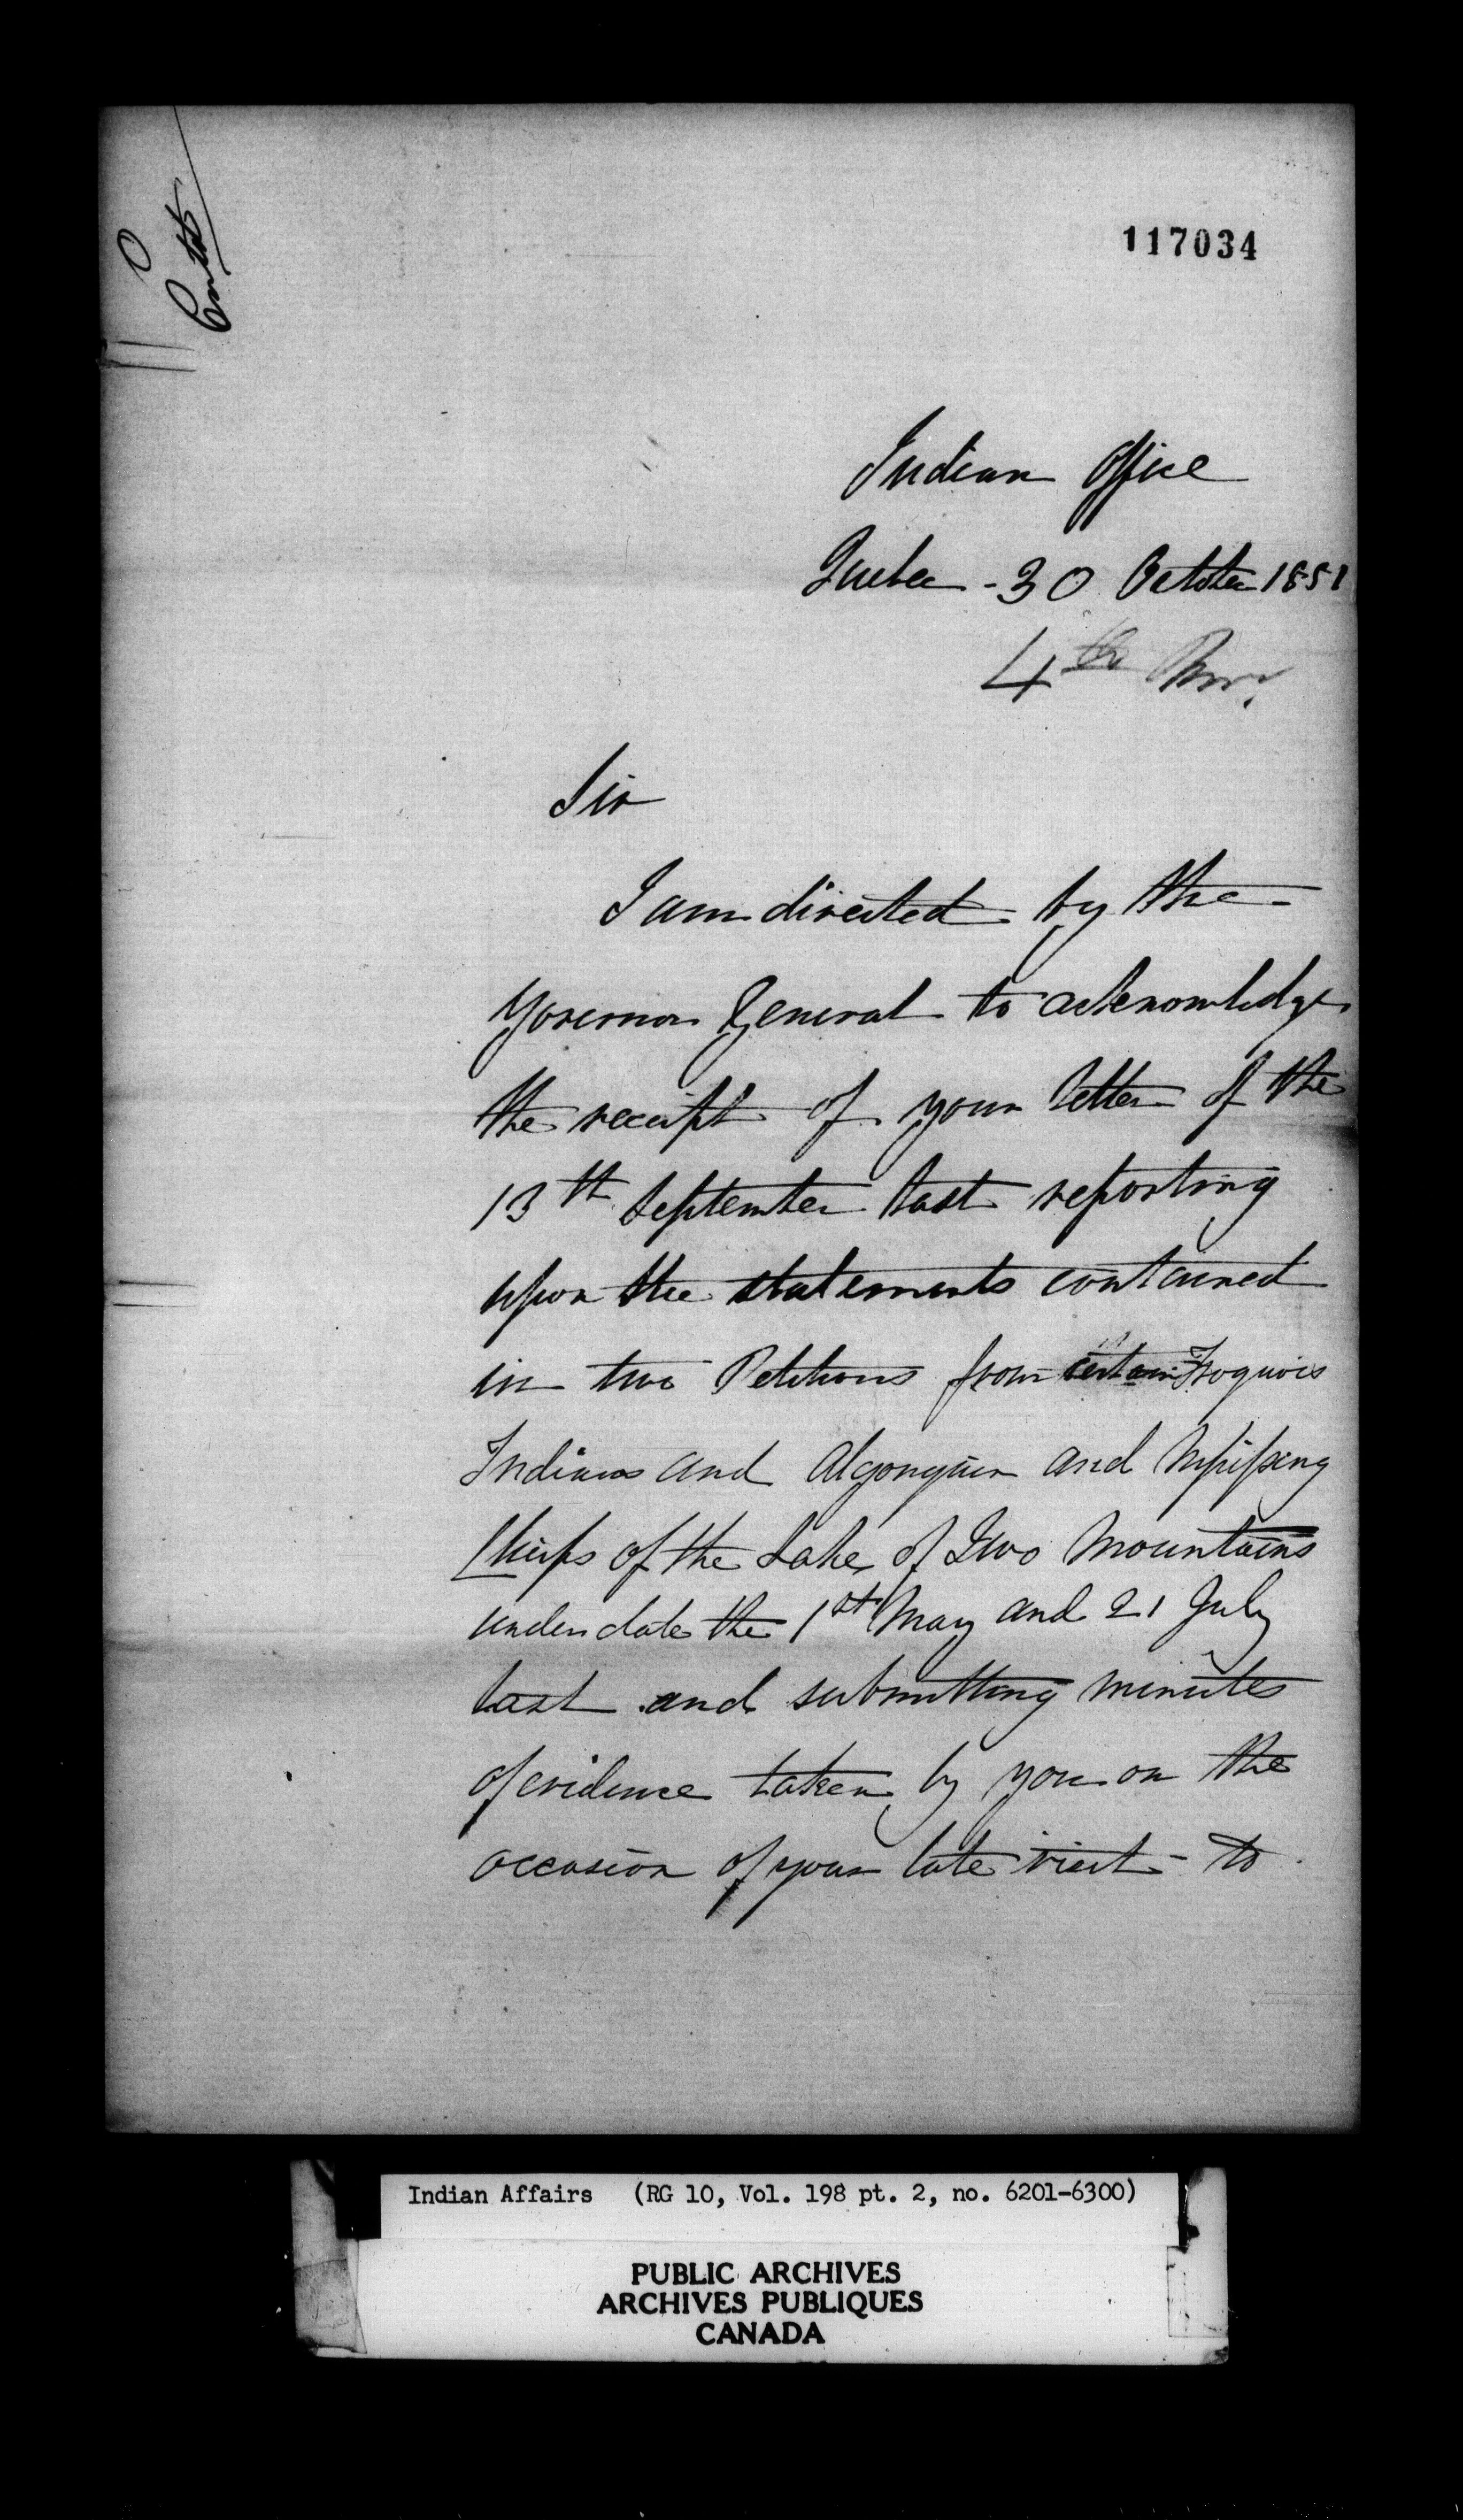 117034
Indian Office
Quebec - 30 October 1851
4th Nov.
Sir
I am directed by the
Governor General to acknowledge
the receipt of your letter of the
13th September last reporting
upon the statements contained
in two Petitions from certain Iroquois
Indians and Algonquin and Nipissing
Chiefs of the Lake of Two Mountains
under date the 1st May and 21 July
last and submitting minutes
of evidence taken by you on the
occasion of your late visit to
Indian Affairs (RG 10, Vol. 198 pt. 2, no. 6201-6300)
PUBLIC ARCHIVES
ARCHIVES PUBLIQUES
CANADA